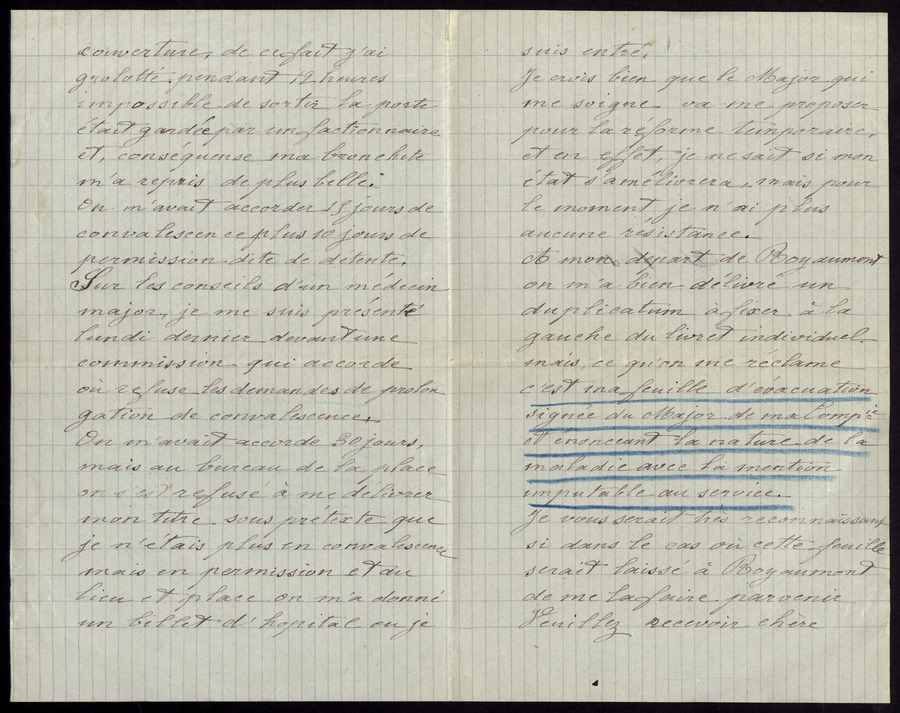 couverture, de ce fait j'ai
grolotté pendant 12 heures
impossible de sortir la porte
était gardée par un factionnaire
et, conséquense ma bronchite
m'a repris de plus belle.
On m'avait accorder 15 jours de
convalescence plus 10 jours de
permission dite de détente.
Sur les conseils d'un médecin
major, je me suis présenté
lundi dernier devant une
commission qui accorde
où refuse les demandes de prolon
gation de convalescence,
On m'avait accorde 30 jours,
mais au bureau de la place
on s'est refusé à me délivrer
mon titre sous prétexte que
je n'étais plus en convalescence
mais en permission et au
lieu et place on m'a donné
un billet d'hopital ou je
suis entré.
Je crois bien que le Major qui
me soigne va me proposer
pour la réforme temporaire,
et en effet, je ne sait si mon
état s'améliorera, mais pour
le moment je n'ai plus
aucune résistance.
A mon départ de Royaumont
on m'a bien délivré un
duplicatum à fixer à la
gauche du livret individuel.
mais, ce qu'on me réclame
c'est ma feuille d'évacuation
signée du Major de ma Compie
et énonceant la nature de la
maladie avec la mention
imputable au service.
Je vous serait très reconnaissant
si dans le cas où cette feuille
serait laissé à Royaumont
de me la faire parvenir
Veuillez recevoir chère